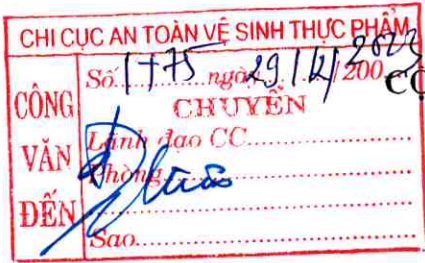 CHI CỤC AN TOÀN VỆ SINH THỰC PHẨM
CÔNG VĂN ĐẾN
Số 1775 ngày 29/12/200 2023
CHUYỂN
Lãnh đạo CC
Phòng
Sao